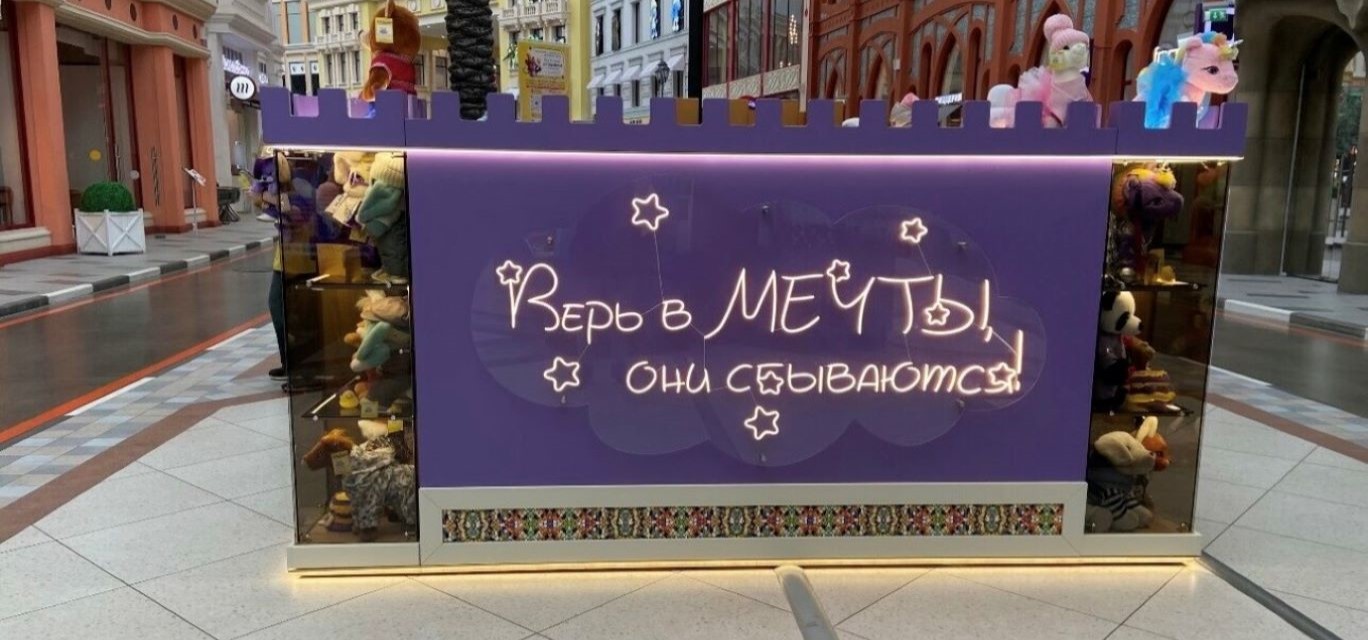 m
Верь в МЕЧТЫ,
они сбываются!